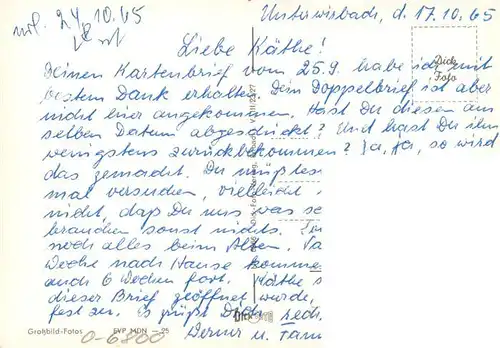 24.10.65
Unterwirbach, d. 17.10.65
Liebe Käthe!
Dick
Foto
Deinen Kartenbrief vom 25.9. habe ich mit
bestem Dank erhalten. Dein Doppelbrief ist aber
nicht hier angekommen. Hast Du diesen am
selben Datum abgeschickt? Und hast Du ihn
wenigstens zurückbekommen? Ja, ja, so wird
das gemacht. Du müßtest
mal versuchen, vielleicht
nicht, daß Du uns was
brauchen sonst nichts.
noch alles beim Alten.
Woche nach Hause kommen
auch 6 Wochen fort. Käthe
dieser Brief geöffnet wurde,
fest zu. Es grüßt Dich
Werner u. Fam
Großbild-Fotos
EVP MDN -,25
0-6800